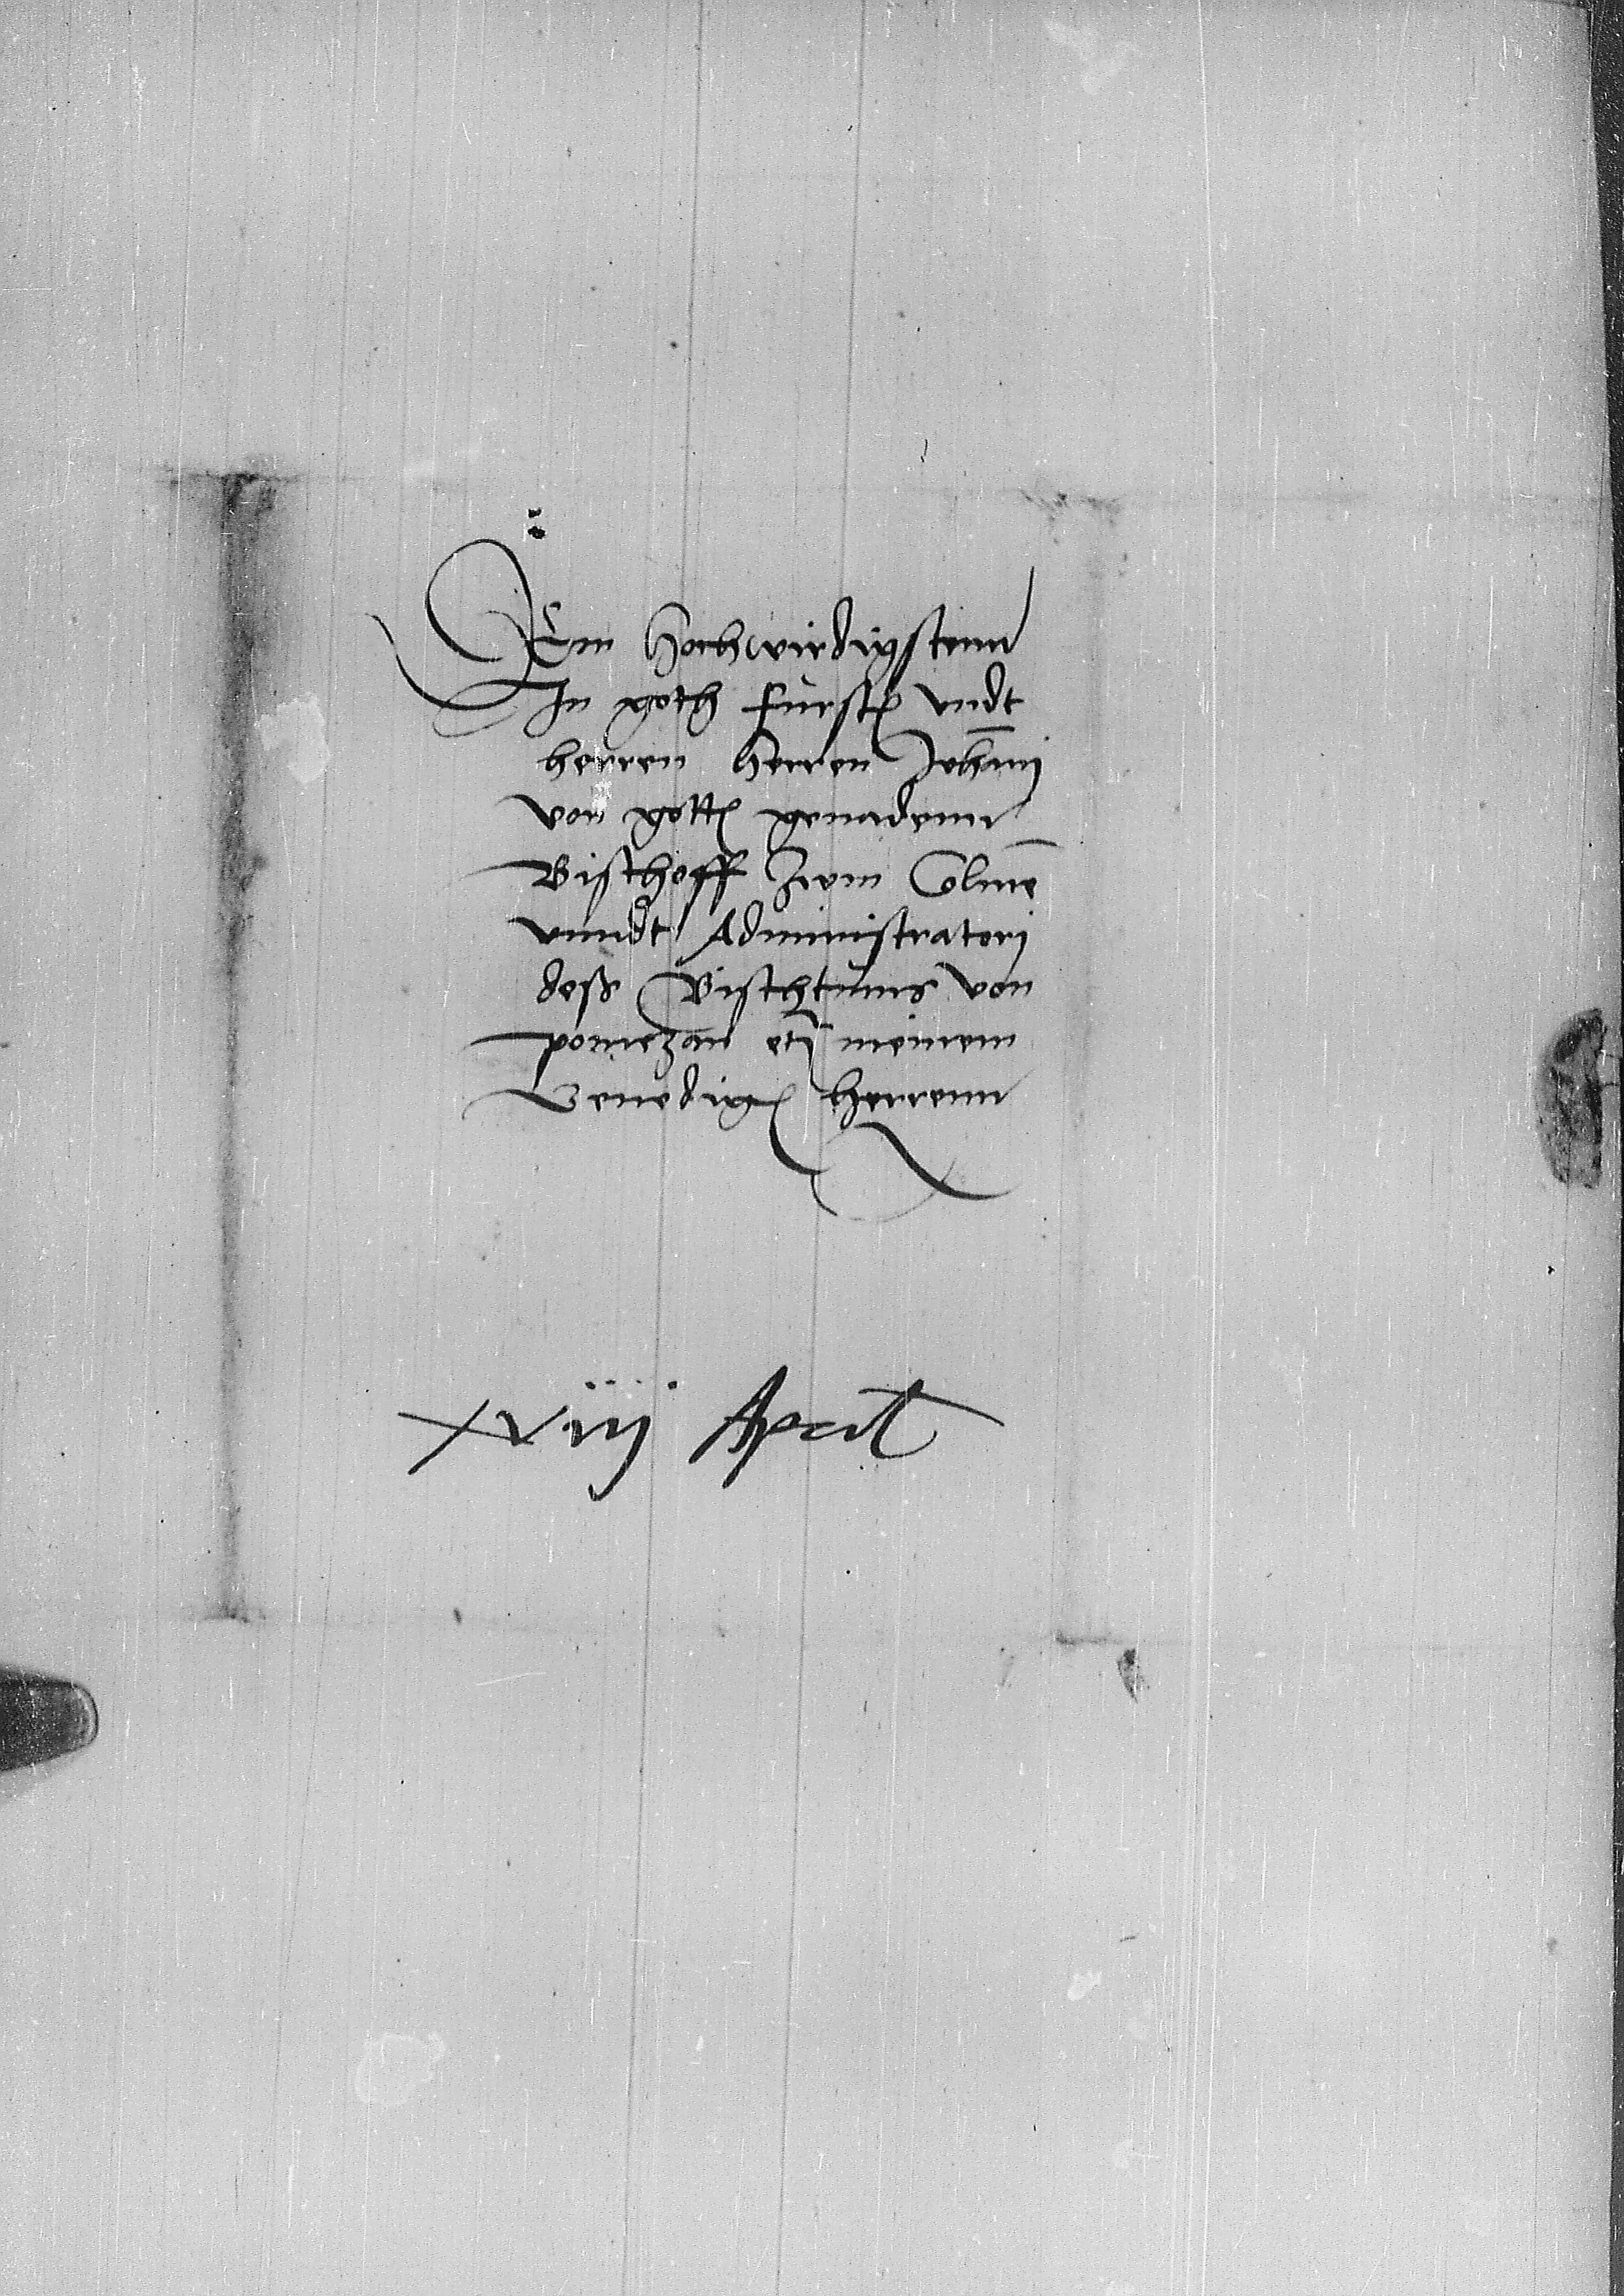 Dem hochwirdigstenn
In goth furstn vndt
herren herren Joha̅nj
von gottn genadenn
Bischoff zum Colme̅
vnndt Administratorj
deß Bischtums von
pomezan etc meinem
Genedign herrenn
xviij April